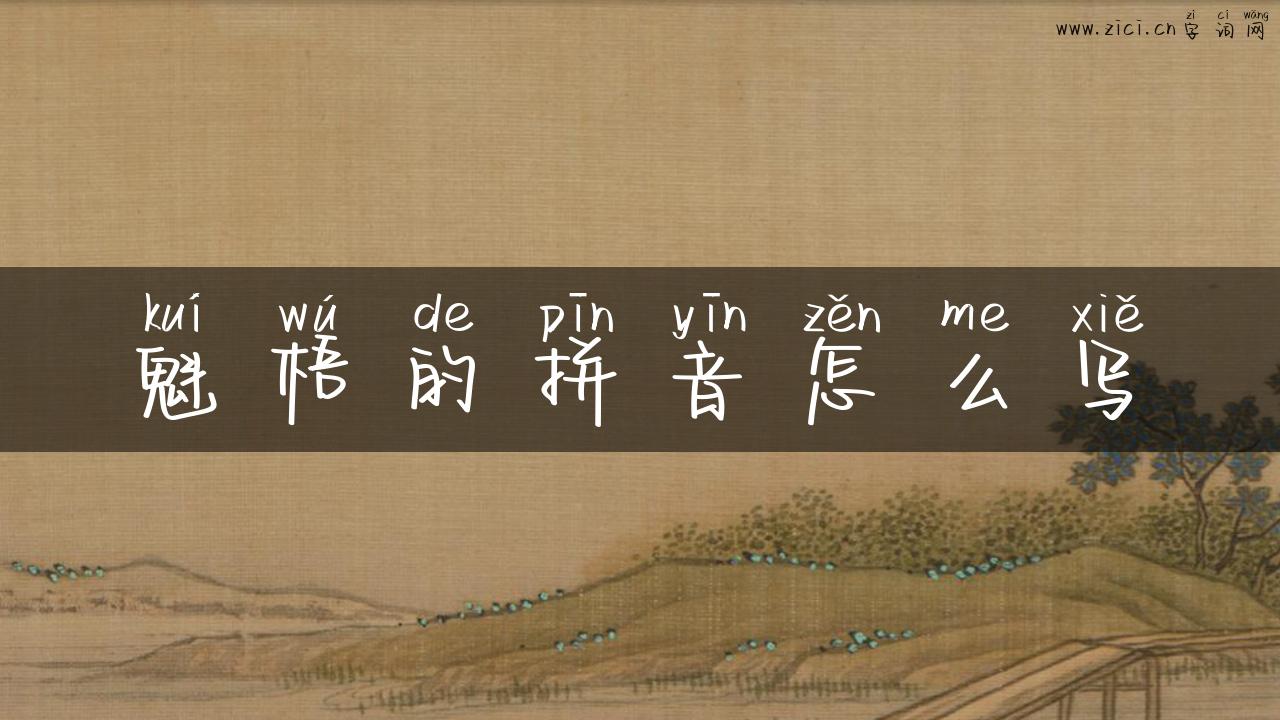 zì cí wǎng
www.zici.cn 字词网
kuí wú de pīn yīn zěn me xiě
魁梧的拼音怎么写